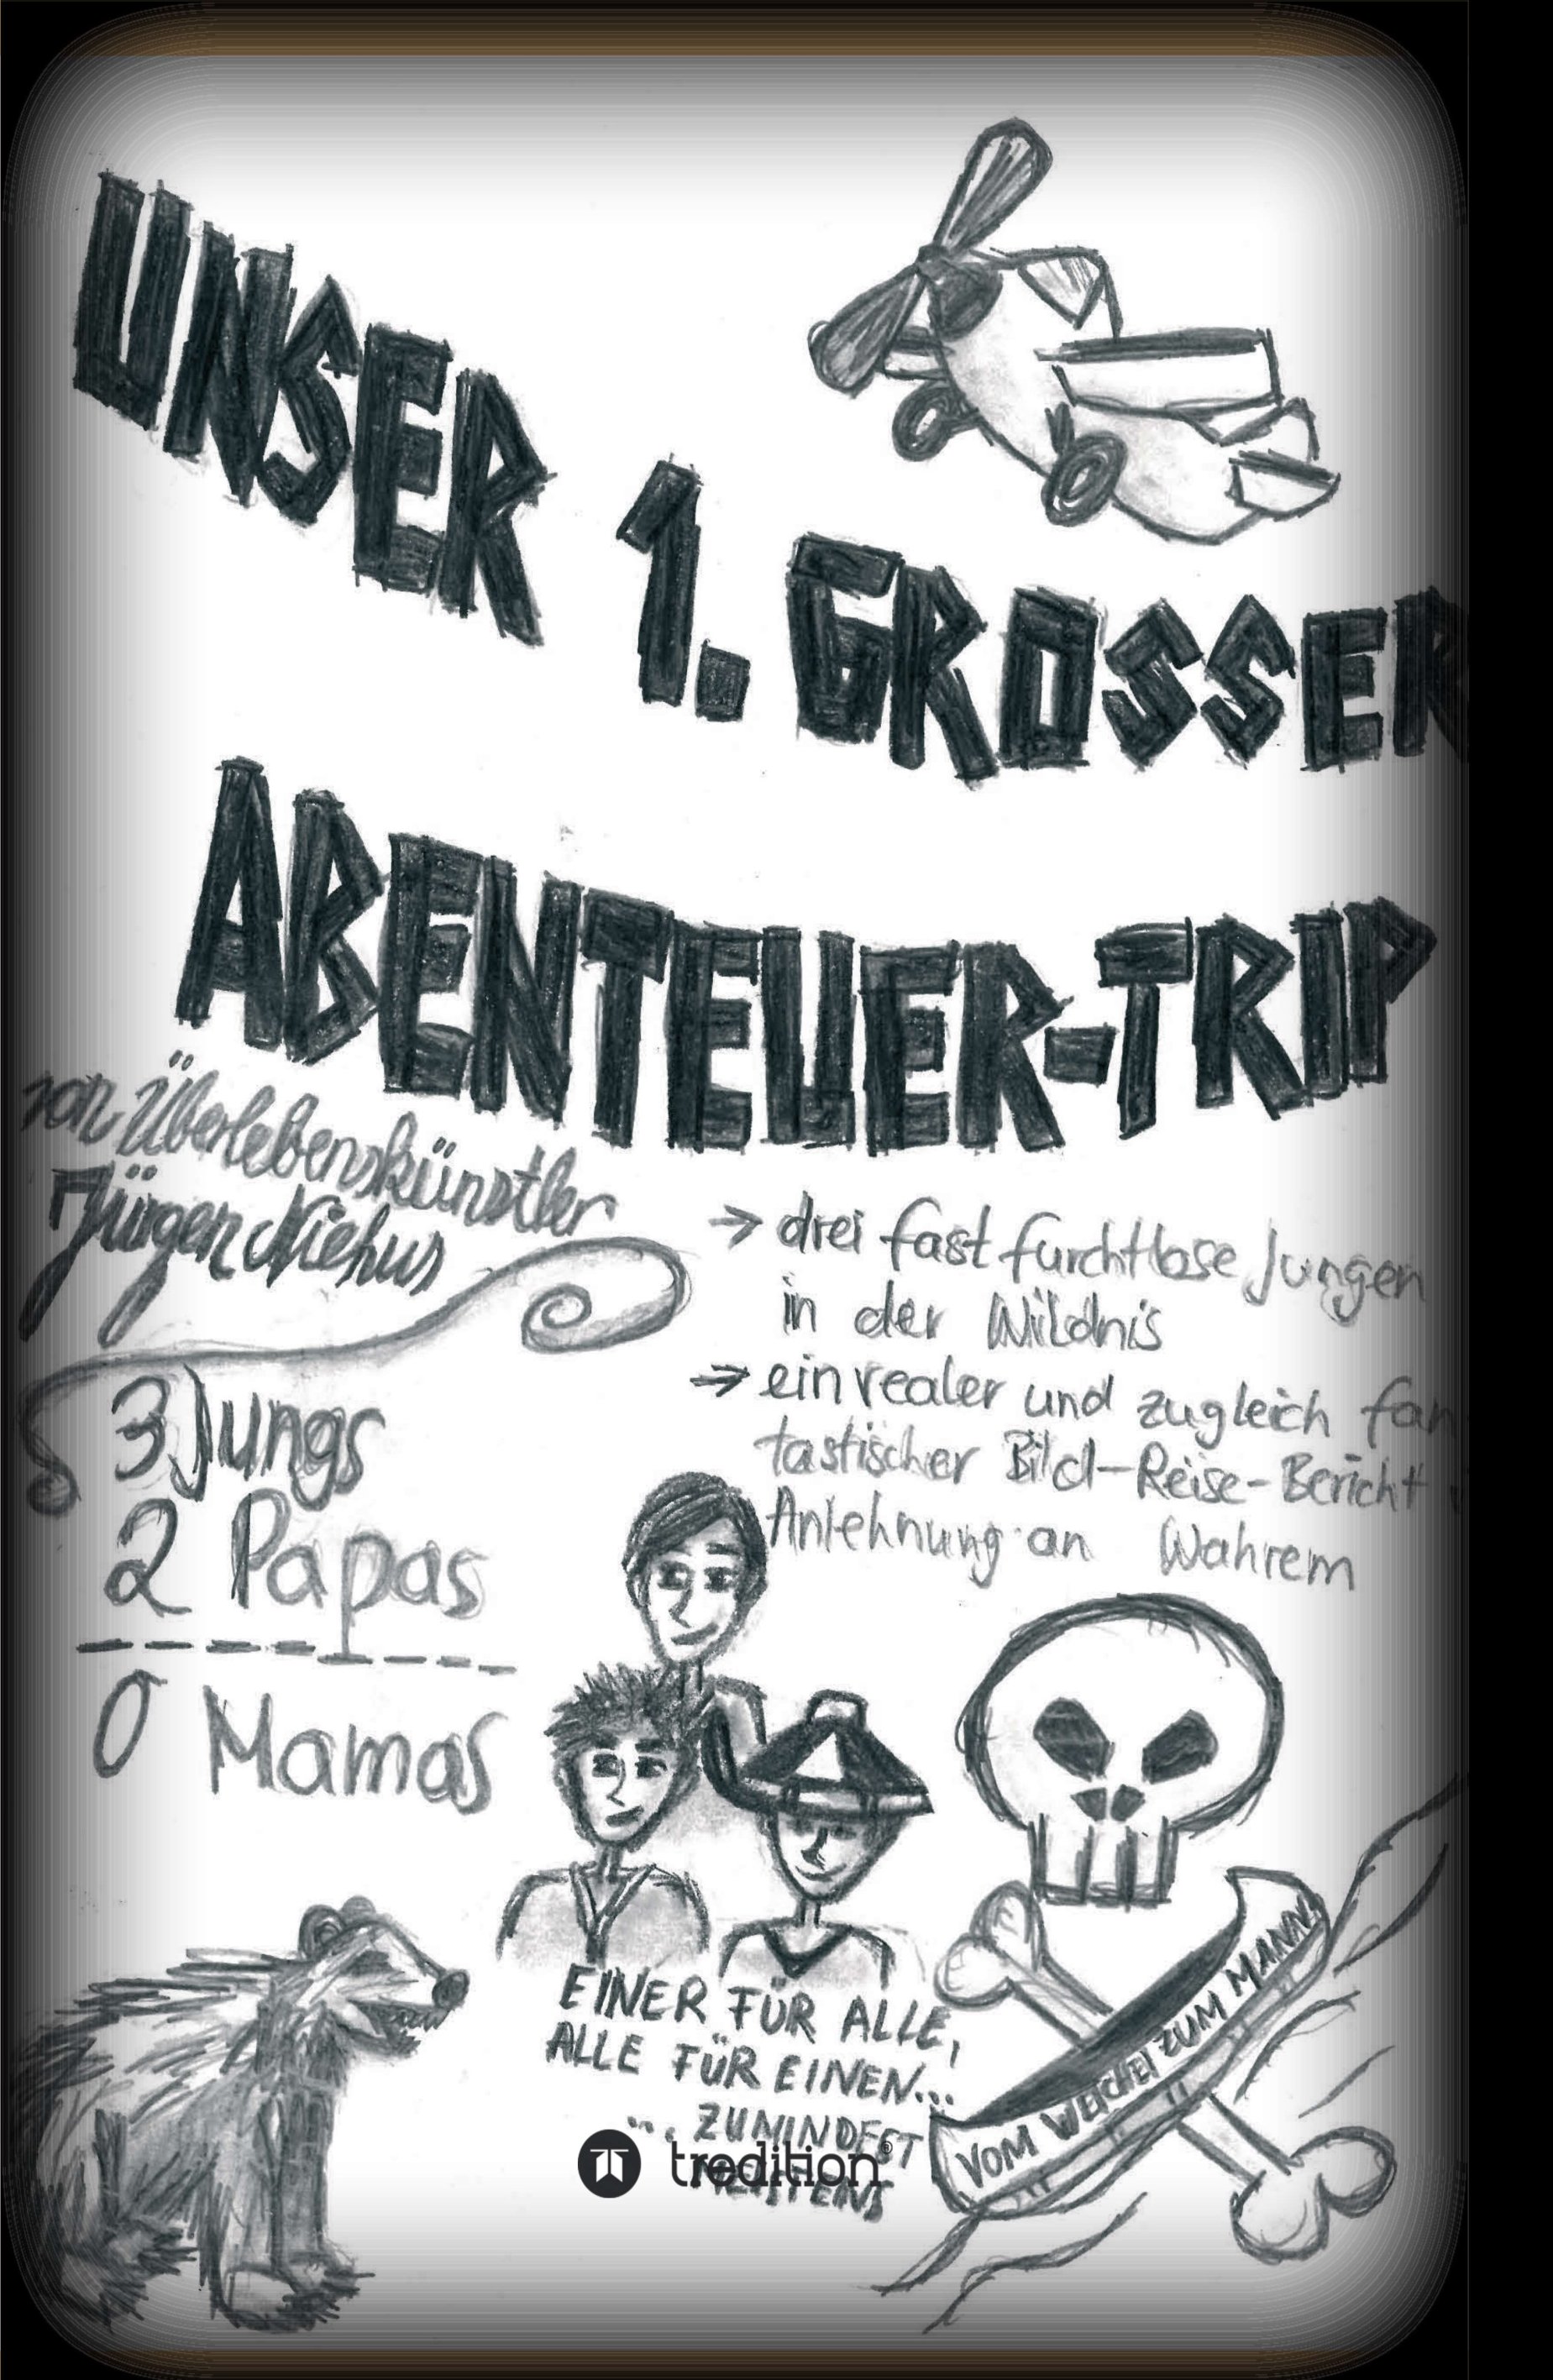 UNSER 1. GROSSER
ABENTEUER-TRIP
von Überlebenskünstler
Jürgen Niehus
→ drei fast furchtlose Jungen
in der Wildnis
→ ein realer und zugleich fan
tastischer Bild-Reise-Bericht
Anlehnung an Wahrem
3 Jungs
2 Papas
0 Mamas
EINER FÜR ALLE,
ALLE FÜR EINEN...
... ZUMINDEST
MEISTENS
tredition®
VOM WEICHEI ZUM MANN!